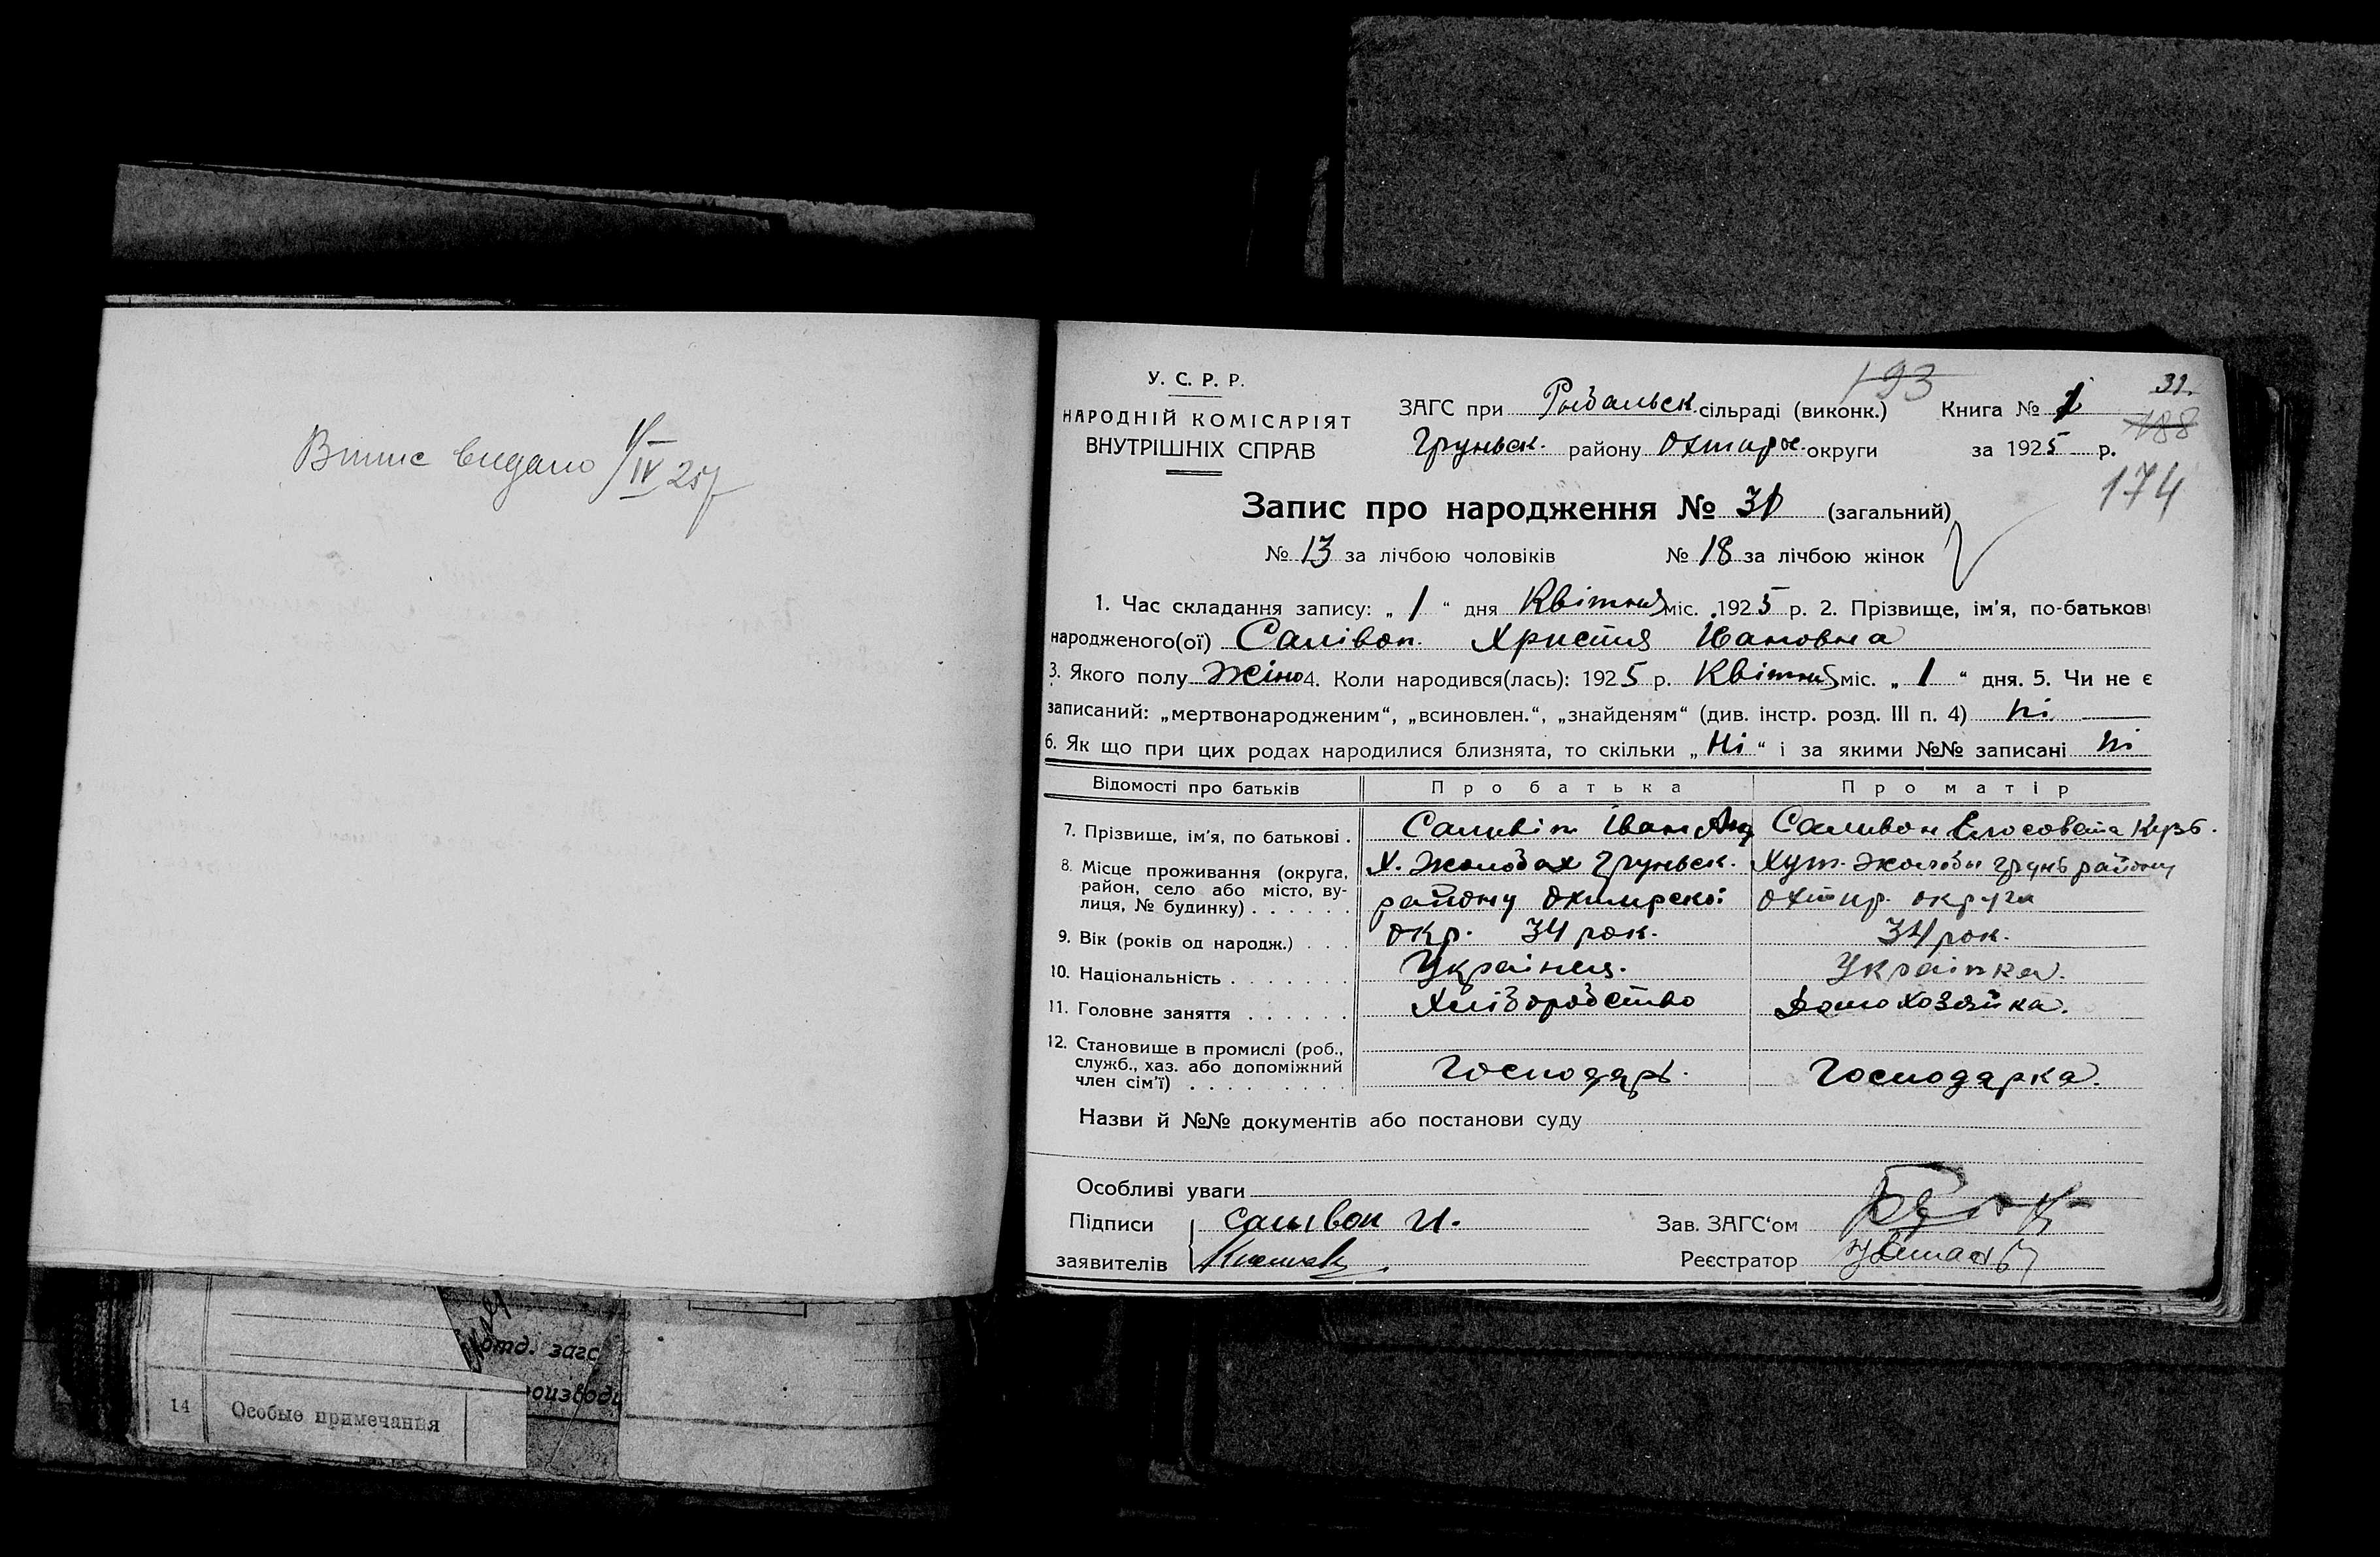 Витис видано 1/IV 25 р
отд. загс
14 Особые примечания
У. С. Р. Р.
НАРОДНІЙ КОМІСАРІЯТ
ВНУТРІШНІХ СПРАВ
193
31.
ЗАГС при Рыбальск. сільраді (виконк.) Книга № 1
188
Груньск. району Охтирс. округи за 1925 р.
174
Запис про народження № 31 (загальний)
№ 13 за лічбою чоловіків № 18 за лічбою жінок
1. Час складання запису: „ 1 “ дня Квітня міс. 1925 р. 2. Прізвище, ім'я, по-батькові
народженого(ої) Салівон. Христя Івановна
3. Якого полу Жіно 4. Коли народився(лась): 1925 р. Квітня міс. „ 1 “ дня. 5. Чи не є
записаний: „мертвонародженим“, „всиновлен.“, „знайденям“ (див. інстр. розд. III п. 4) ні
6. Як що при цих родах народилися близнята, то скільки „ Ні “ і за якими №№ записані ні
Відомості про батьків Про батька Про матір
7. Прізвище, ім'я, по батькові . Саливін Іван Анд Саливон Єлосовета Кузь.
8. Місце проживання (округа, Х. Жолобах Груньск. Хут. Жолобы Грунь району
район, село або місто, ву- району Охтирскої Охтир. округи
лиця, № будинку) . . . . . .
9. Вік (років од народж.) . . . окр. 34 рок. 34 рок.
10. Національність . . . . . . . Українец. Українка.
11. Головне заняття . . . . . . Хліборобство Домохозяйка.
12. Становище в промислі (роб.,
служб., хаз. або допоміжний Господарь. Господарка.
член сім'ї) . . . . . . . . .
Назви й №№ документів або постанови суду
Особливі уваги
Підписи Саливон И. Зав. ЗАГС'ом
заявителів Реєстратор